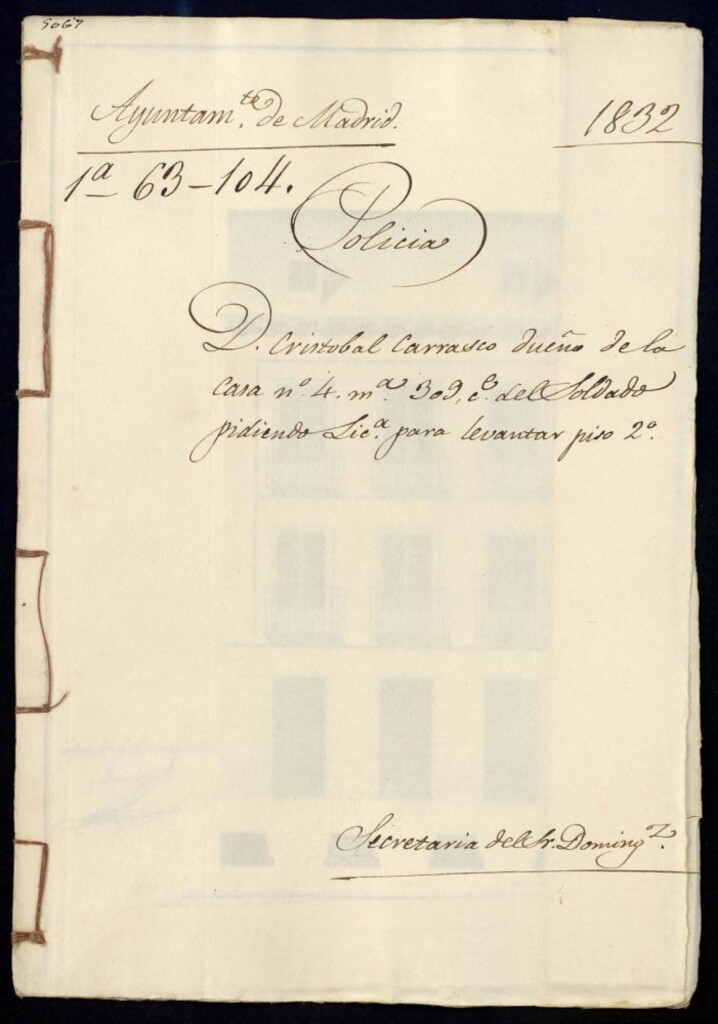 5067
Ayuntam.te de Madrid.
1832
1a 63-104.
Policia
D. Cristobal Carrasco dueño de la
casa nº. 4. mª. 309, c.e del Soldado
pidiendo Lic.ª para levantar piso 2º.
Secretaria del Sr. Doming.z